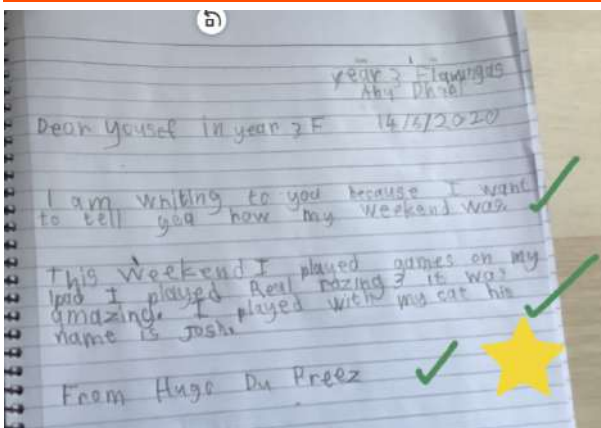 year 3 Flamingos
Abu Dhabi
Dear Yousef in year 3F 14/6/2020
I am whiting to you because I want
to tell you how my weekend was.
This Weekend I played games on my
Ipad I played Real razing 3 it was
amazing. I played with my cat his
name is Josh.
From Hugo Du Preez